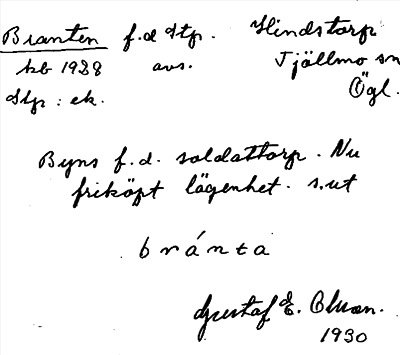 Branten f.d Stp. Hindstorp
kb 1928 avs. Tjällmo sn
Stp : ek. Ögl.
Byns f.d. soldattorp. Nu
friköpt lägenhet. s. ut
bránta
Gustaf E.
1930